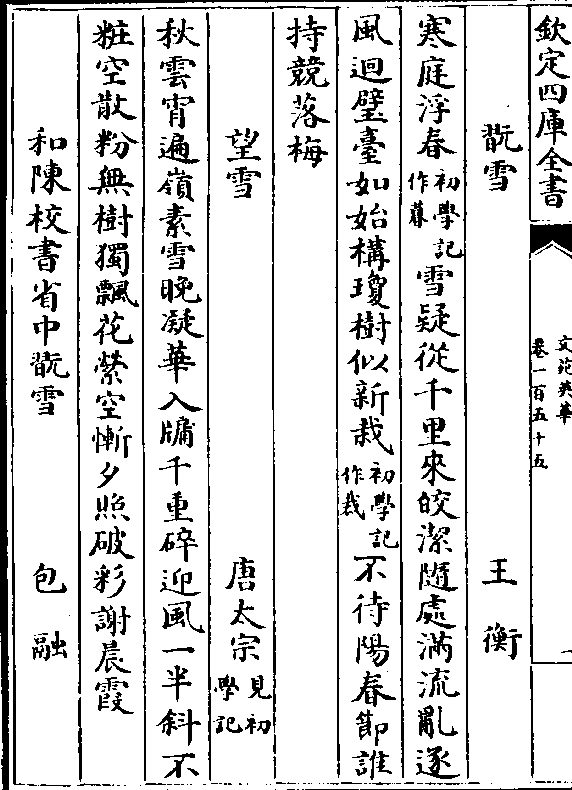 欽定四庫全書
文苑英華
卷一百五十五
翫雪　王衡
寒庭浮春初學記作暮雪疑從千里來皎潔隨處滿流亂逐
風迴璧臺如始構瓊樹似新栽初學記作裁不待陽春節誰
持競落梅
望雪　唐太宗見初學記
秋雲宵遍嶺素雪晚凝華入牖千重碎迎風一半斜不
粧空散粉無樹獨飄花縈空慚夕照破彩謝晨霞
和陳校書省中翫雪　包融